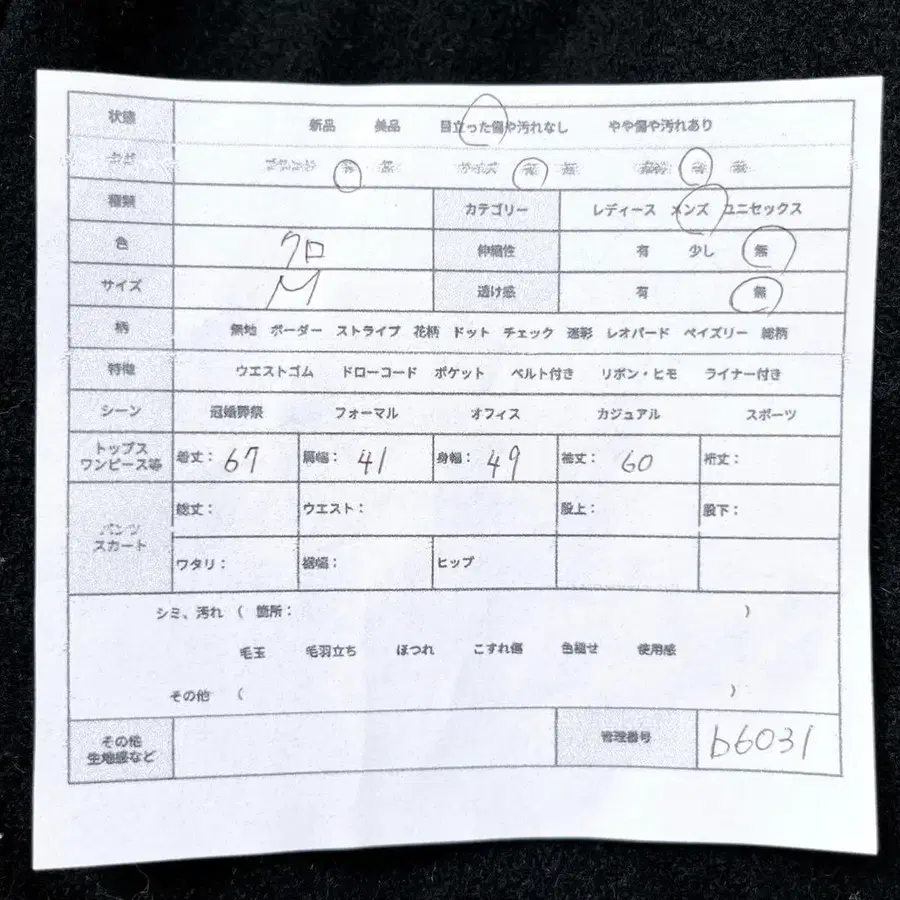 状態 新品 美品 目立った傷や汚れなし やや傷や汚れあり
種類 カテゴリー レディース メンズ ユニセックス
色 クロ 伸縮性 有 少し 無
サイズ M 透け感 有 無
柄 無地 ボーダー ストライプ 花柄 ドット チェック 迷彩 レオパード ペイズリー 総柄
特徴 ウエストゴム ドローコード ポケット ベルト付き リボン・ヒモ ライナー付き
シーン 冠婚葬祭 フォーマル オフィス カジュアル スポーツ
トップス
ワンピース等 着丈: 67 肩幅: 41 身幅: 49 袖丈: 60 裄丈:
パンツ
スカート 総丈: ウエスト: 股上: 股下:
ワタリ: 裾幅: ヒップ
シミ、汚れ ( 箇所: )
毛玉 毛羽立ち ほつれ こすれ傷 色褪せ 使用感
その他 ( )
その他
生地感など 管理番号 b6031